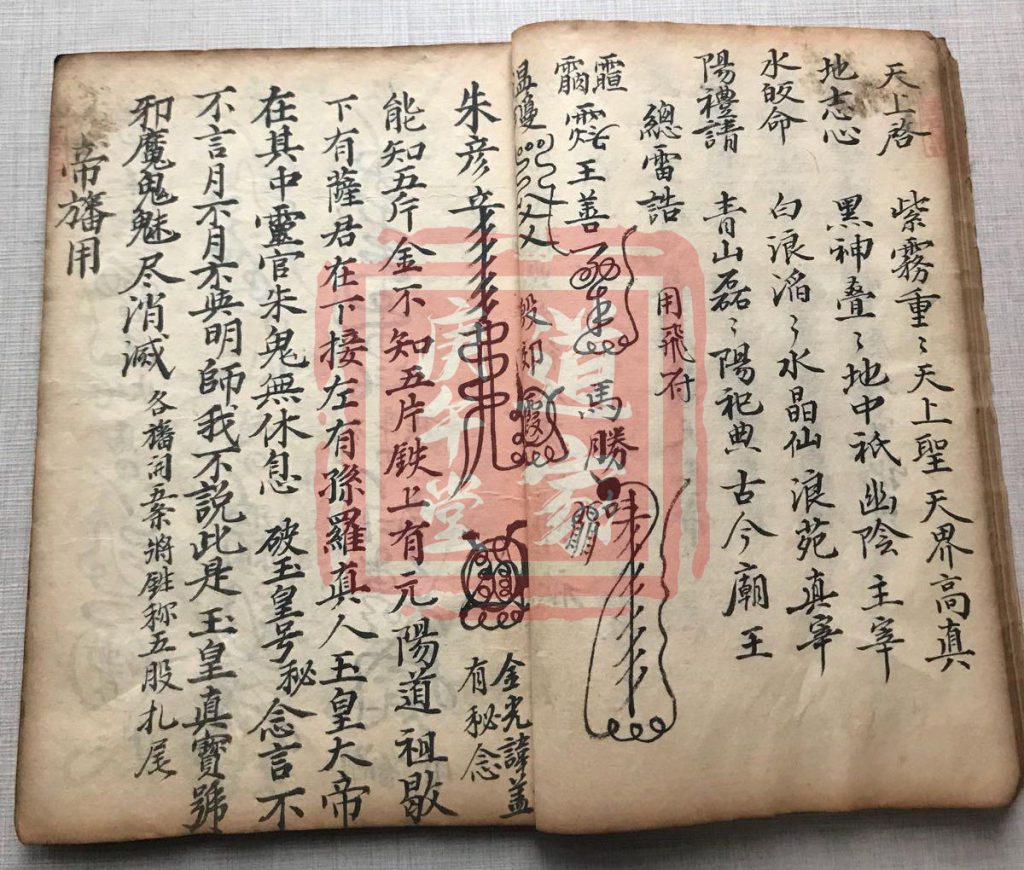 天上啓　紫霧重〻天上聖　天界高真
地志心　黑神叠〻地中祇　幽陰主宰
水皈命　白浪滔〻水晶仙　浪苑真宰
陽禮請　青山磊〻陽祀典　古今廟王
總雷誥　用飛符
王善　馬勝
朱彦
金光諱盖
有秘念
能知五斤金不知五片鉄上有元陽道祖歇
下有薩君在下接左有孫羅真人玉皇大帝
在其中靈官朱鬼無休息　破玉皇号秘念言不
不言月不月不與明師我不説此是玉皇真寶號
邪魔鬼魅尽消滅　各旛開五案將鉎称五股扎尾
帝旛用
道家
庚辛堂